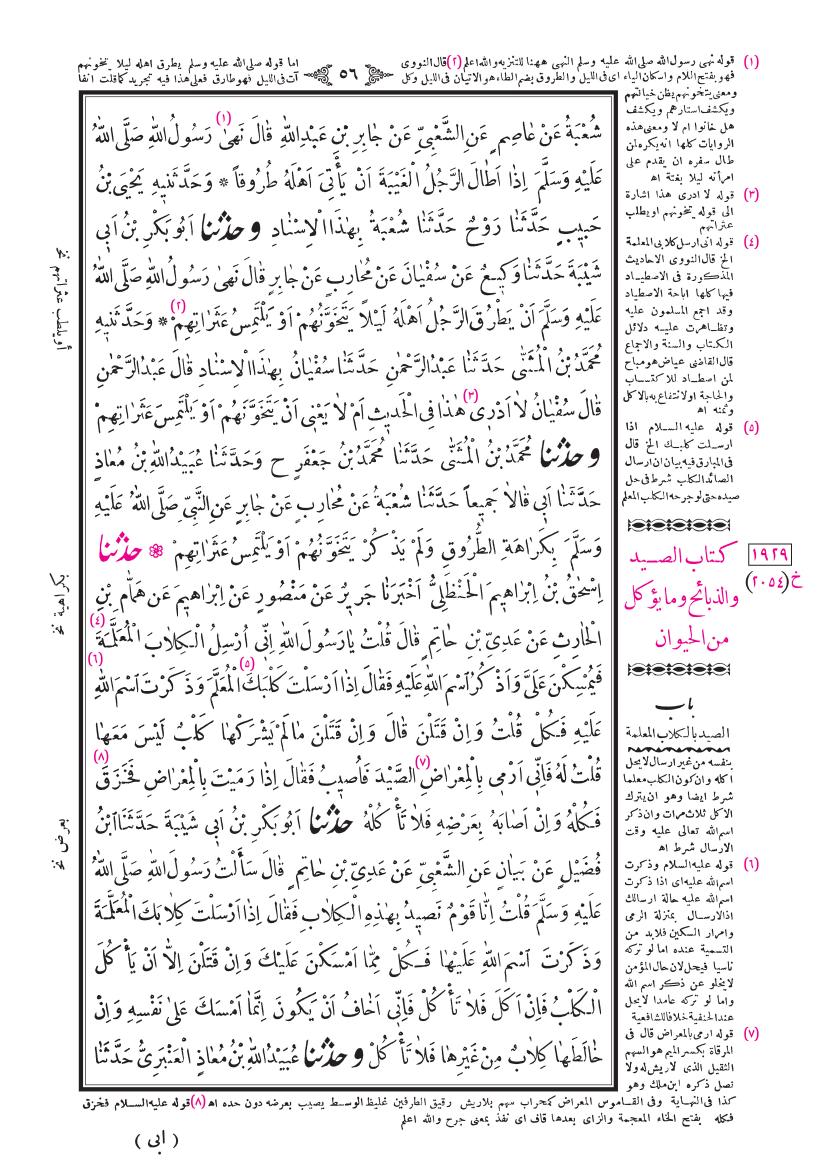 (١) قوله نهى رسول الله صلى الله عليه وسلم النهى ههنا للتنزيه والله اعلم (٢) قال النووى
فهو بفتح اللام واسكان الياء اى فى الليل والطروق بضم الطاء هو الاتيان فى الليل وكل
﴿ ٥٦ ﴾
اما قوله صلى الله عليه وسلم يطرق اهله ليلا يتخونهم
آت فى الليل فهو طارق فعلى هذا فيه تجريد كما قلت انفا
ومعنى يتخونهم يظن خيانتهم
ويكشف استارهم ويكشف
هل خانوا ام لا ومعنى هذه
الروايات كلها انه يكره لمن
طال سفره ان يقدم على
امرأته ليلا بغتة اه
(٣) قوله لا ادرى هذا اشارة
الى قوله يتخونهم او يطلب
عثراتهم
(٤) قوله انى ارسل كلابى المعلمة
الخ قال النووى الاحاديث
المذكورة فى الاصطياد
فيها كلها اباحة الاصطياد
وقد اجمع المسلمون عليه
وتظاهرت عليه دلائل
الكتاب والسنة والاجماع
قال القاضى عياض هو مباح
لمن اصطاد للاكتساب
والحاجة اولا نتفاع به بالاكل
وثمنه اه
(٥) قوله عليه السلام اذا
ارسلت كلبك الخ قال
فى المبارق فيه بيان ان ارسال
الصائد الكلب شرط فى حل
صيده حتى لو جرحه الكلب المعلم
شُعْبَةُ عَنْ عَاصِمٍ عَنِ الشَّعْبِيِّ عَنْ جَابِرِ بْنِ عَبْدِاللهِ قَالَ نَهىٰ (١) رَسُولُ اللهِ صَلَّى اللهُ
عَلَيْهِ وَسَلَّمَ اِذَا اَطَالَ الرَّجُلُ الْغَيْبَةَ اَنْ يَأْتِيَ اَهْلَهُ طُرُوقاً * وَحَدَّثَنِيهِ يَحْيَى بْنُ
حَبِيبٍ حَدَّثَنَا رَوْحٌ حَدَّثَنَا شُعْبَةُ بِهٰذَا الْاِسْنَادِ وحدثنا اَبُو بَكْرِ بْنُ اَبِي
شَيْبَةَ حَدَّثَنَا وَكِيعٌ عَنْ سُفْيَانَ عَنْ مُحَارِبٍ عَنْ جَابِرٍ قَالَ نَهىٰ رَسُولُ اللهِ صَلَّى اللهُ
عَلَيْهِ وَسَلَّمَ اَنْ يَطْرُقَ الرَّجُلُ اَهْلَهُ لَيْلاً يَتَخَوَّنُهُمْ اَوْ يَلْتَمِسُ عَثَرَاتِهِمْ (٢) * وَحَدَّثَنِيهِ
مُحَمَّدُ بْنُ الْمُثَنّٰى حَدَّثَنَا عَبْدُ الرَّحْمٰنِ حَدَّثَنَا سُفْيَانُ بِهٰذَا الْاِسْنَادِ قَالَ عَبْدُ الرَّحْمٰنِ
قَالَ سُفْيَانُ لاَ اَدْرِي (٣) هٰذَا فِي الْحَدِيثِ اَمْ لاَ يَعْنِى اَنْ يَتَخَوَّنَهُمْ اَوْ يَلْتَمِسَ عَثَرَاتِهِمْ
وحدثنا مُحَمَّدُ بْنُ الْمُثَنّٰى حَدَّثَنَا مُحَمَّدُ بْنُ جَعْفَرٍ ح وَحَدَّثَنَا عُبَيْدُ اللهِ بْنُ مُعَاذٍ
حَدَّثَنَا اَبِي قَالاَ جَمِيعاً حَدَّثَنَا شُعْبَةُ عَنْ مُحَارِبٍ عَنْ جَابِرٍ عَنِ النَّبِيِّ صَلَّى اللهُ عَلَيْهِ
وَسَلَّمَ بِكَرَاهَةِ الطُّرُوقِ وَلَمْ يَذْكُرْ يَتَخَوَّنُهُمْ اَوْ يَلْتَمِسُ عَثَرَاتِهِمْ ❁ حدثنا
اِسْحٰقُ بْنُ اِبْرَاهِيمَ الْحَنْظَلِيُّ اَخْبَرَنَا جَرِيرٌ عَنْ مَنْصُورٍ عَنْ اِبْرَاهِيمَ عَنْ هَمَّامِ بْنِ
الْحَارِثِ عَنْ عَدِيِّ بْنِ حَاتِمٍ قَالَ قُلْتُ يَارَسُولَ اللهِ اِنِّى اُرْسِلُ الْكِلاَبَ الْمُعَلَّمَةَ (٤)
فَيُمْسِكْنَ عَلَيَّ وَاَذْكُرُ اسْمَ اللهِ عَلَيْهِ فَقَالَ اِذَا اَرْسَلْتَ كَلْبَكَ (٥) الْمُعَلَّمَ وَذَكَرْتَ اسْمَ اللهِ (٦)
عَلَيْهِ فَكُلْ قُلْتُ وَاِنْ قَتَلْنَ قَالَ وَاِنْ قَتَلْنَ مَالَمْ يَشْرَكْهَا كَلْبٌ لَيْسَ مَعَهَا
قُلْتُ لَهُ فَاِنِّى اَرْمِى بِالْمِعْرَاضِ (٧) الصَّيْدَ فَاُصِيبُ فَقَالَ اِذَا رَمَيْتَ بِالْمِعْرَاضِ فَخَزَقَ (٨)
فَكُلْهُ وَاِنْ اَصَابَهُ بِعَرْضِهِ فَلاَ تَأْكُلْهُ حدثنا اَبُو بَكْرِ بْنُ اَبِي شَيْبَةَ حَدَّثَنَا ابْنُ
فُضَيْلٍ عَنْ بَيَانٍ عَنِ الشَّعْبِيِّ عَنْ عَدِيِّ بْنِ حَاتِمٍ قَالَ سَأَلْتُ رَسُولَ اللهِ صَلَّى اللهُ
عَلَيْهِ وَسَلَّمَ قُلْتُ اِنَّا قَوْمٌ نَصِيدُ بِهٰذِهِ الْكِلاَبِ فَقَالَ اِذَا اَرْسَلْتَ كِلاَبَكَ الْمُعَلَّمَةَ
وَذَكَرْتَ اسْمَ اللهِ عَلَيْهَا فَكُلْ مِمَّا اَمْسَكْنَ عَلَيْكَ وَاِنْ قَتَلْنَ اِلاَّ اَنْ يَأْكُلَ
الْكَلْبُ فَاِنْ اَكَلَ فَلاَ تَأْكُلْ فَاِنِّى اَخَافُ اَنْ يَكُونَ اِنَّمَا اَمْسَكَ عَلىٰ نَفْسِهِ وَاِنْ
خَالَطَهَا كِلاَبٌ مِنْ غَيْرِهَا فَلاَ تَأْكُلْ وحدثنا عُبَيْدُ اللهِ بْنُ مُعَاذٍ الْعَنْبَرِيُّ حَدَّثَنَا
أو يطلب عثراتهم نخ
بكراهية نخ
بعرض نخ
١٩٢٩
خ (٢٠٥٤)
كتاب الصيد
والذبائح وما يؤكل
من الحيوان
باب
الصيد بالكلاب المعلمة
بنفسه من غير ارسال لا يحل
اكله وان كون الكلب معلما
شرط ايضا وهو ان يترك
الاكل ثلاث مرات وان ذكر
اسم الله تعالى عليه وقت
الارسال شرط اه
(٦) قوله عليه السلام وذكرت
اسم الله عليه اى اذا ذكرت
اسم الله عليه حالة ارسالك
اذ الارسال بمنزلة الرمى
وامرار السكين فلابد من
التسمية عنده اما لو تركه
ناسيا فيحل لان حال المؤمن
لا يخلو عن ذكر اسم الله
واما لو تركه عامدا لا يحل
عند الحنفية خلافا للشافعية
(٧) قوله ارمى بالمعراض قال فى
المرقاة بكسر الميم هو السهم
الثقيل الذى لا ريش له ولا
نصل ذكره ابن ملك وهو
كذا فى النهاية وفى القاموس المعراض كمحراب سهم بلا ريش رقيق الطرفين غليظ الوسط يصيب بعرضه دون حده اه (٨) قوله عليه السلام فخزق
فكله بفتح الخاء المعجمة والزاى بعدها قاف اى نفذ بمعنى جرح والله اعلم
( ابى )